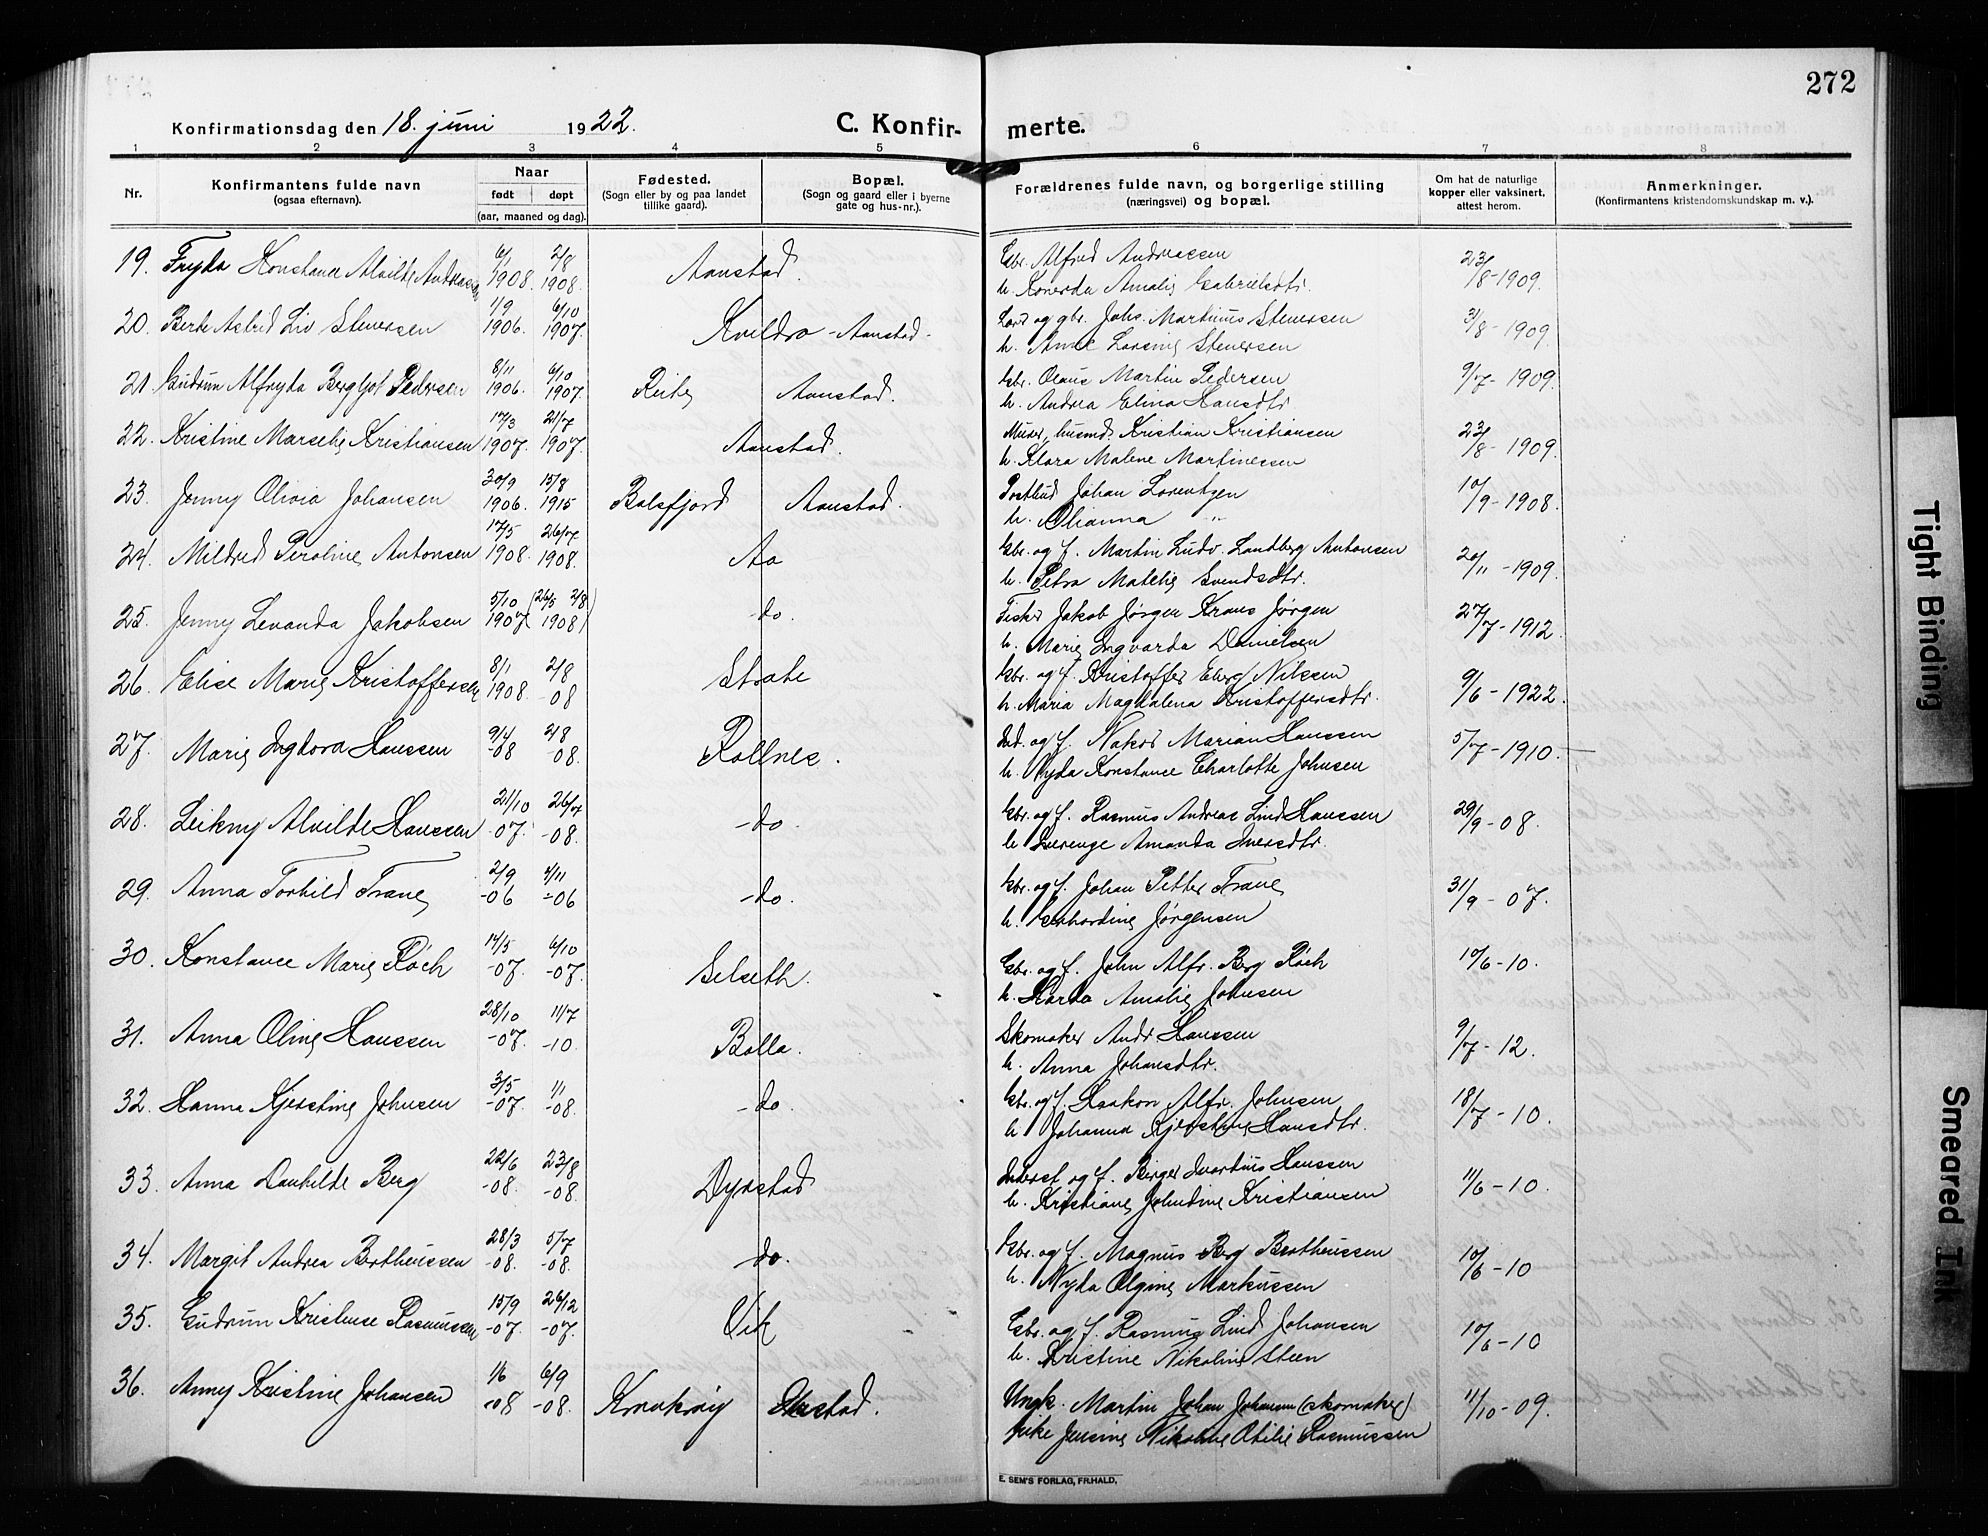 272
Konfirmationsdag den 18. juni 1922. C. Konfirmerte.
1 2 3 4 5 6 7 8
Nr. Konfirmantens fulde navn (ogsaa efternavn). Naar født døpt (aar, maaned og dag). Fødested. (Sogn eller by og paa landet tillike gaard). Bopæl. (Sogn og gaard eller i byerne gate og hus-nr.). Forældrenes fulde navn, og borgerlige stilling (næringsvei) og bopæl. Om hat de naturlige kopper eller vaksinert, attest herom. Anmerkninger. (Konfirmantens kristendomskundskap m. v.).
19. Fryda Konstance Alvilde Andreassen 6/1 1908. 2/8 1908. Aanstad. Gbr. Alfred Andreassen 23/8-1909.
h. Konerda Amalie Gabrielsdtr.
20. Berte Astrid Liv Stenersen 1/9 1906. 6/10 1907. Kvildro - Aanstad - gbr. Johs. Martinus Stenersen 3/8-1909.
h. Anne Stenersen
21. Gudrun Alfryda Bergljot Pedersen 8/11 1906. 6/10 1907. Aanstad. Gbr. Olaus Martin Pedersen 9/7-1909.
h. Andrea Elina Hansdtr
22. Kristine Marselie Kristiansen 17/3 1907. 21/7 1907. Aanstad. husmd. Kristian Kristiansen 23/8-1909.
h. Klara Malene Martinessen
23. Jenny Olivia Johansen 30/9 1906. 15/8 1915 Balsfjord Aanstad. Postbud Johan Lorentzen 10/9-1908.
h. Olianna "
24. Mildred Peroline Antonsen 17/5 1908. 26/7 1908. Aa Gbr. og f. Martin Ludv. Landberg Antonsen 20/11-1909.
h. Petra Matelie Svendsdtr.
25. Jenny Levanda Jakobsen 5/10 1907 (26/5 2/8 1908) do. Fisker Jakob Jørgen Kraus Jørgen 27/7-1912.
h. Marie Ingvarda Danielsen
26. Elise Marie Kristoffersen 8/1 1908. 2/8 -08 Strate Gbr. og f. Kristoffer Eberg Nilssen 9/6-1922.
h. Maria Magdalena Kristoffersdtr.
27. Marie Ingvora Hanssen 9/4 -08 2/8 -08. Rollnes. og f. Nakor Marian Hanssen 5/7-1910.
h. Nyda Konstance Charlotte Johnsen
28. Leikny Alvilde Hanssen 21/10 -07. 26/7 -08. -do. Gbr. og f. Rasmus Andreas Lind Hanssen 29/9-08.
h. Amanda Iversdtr.
29. Anna Torhild Trane 2/9 -06 4/11 -06 -do. Gbr. og f. Johan Petter Trane 31/9-07.
h. Jørgensen
30. Konstance Marie Röch 14/5 -07. 6/10 -07. Selseth. Gbr. og f. John Alfr. Berg Röch 10/6-10.
h. Amalie Johnsen
31. Anna Oline Hanssen 28/10 -07. 11/7 -10. Balla. Skomaker Andr Hanssen 9/7-12.
h. Anna Johansdtr.
32. Hanna Kjerstine Johnsen 3/5 -07. 1/1 -08. -do. Gbr. og f. Haakon Alfr. Johnsen 18/7-10.
h. Johanna Kjerstine Hansdtr.
33. Anna Danhilde Berg 22/6 -08. 23/8 -08. Dyrstad og f. Birger Hanssen 11/6-10.
h. Kristiane Johndine Kristiansen
34. Margit Andrea Bertheussen 28/3 -08. 5/7 -08. -do. Gbr. og f. Magnus Berg Bertheussen 10/6-10
h. Nyka Olgine Markussen
35. Gudrun Kristense Rasmussen 15/9 -07. 26/12 -07. Vik Gbr. og f. Rasmus Lind Johansen 10/6-10
h. Kristine Nikoline Steen
36. Anny Kristine Johansen 1/6 -08 6/9 -08. Krøttøy Martin Johan Johansen (skomaker) 11/10-09.
pike Jensine Nikoline Otilie Rasmussen
E. SEM'S FORLAG, FR.HALD.
Tight Binding
Smeared Ink